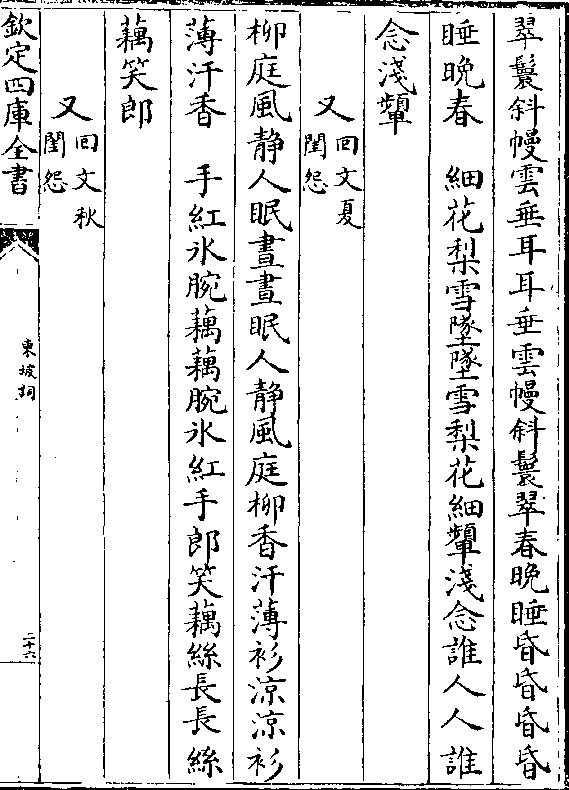 翠鬟斜幔雲垂耳耳垂雲幔斜鬟翠春晚睡昏昏昏昏
睡晚春　細花梨雪墜墜雪梨花細顰淺念誰人人誰
念淺顰
又回文夏閨怨
柳庭風静人眠晝晝眠人静風庭柳香汗薄衫涼涼衫
薄汗香　手紅氷腕藕藕腕氷紅手郎笑藕絲長長絲
藕笑郎
又回文秋閨怨
欽定四庫全書
東坡詞
二十六